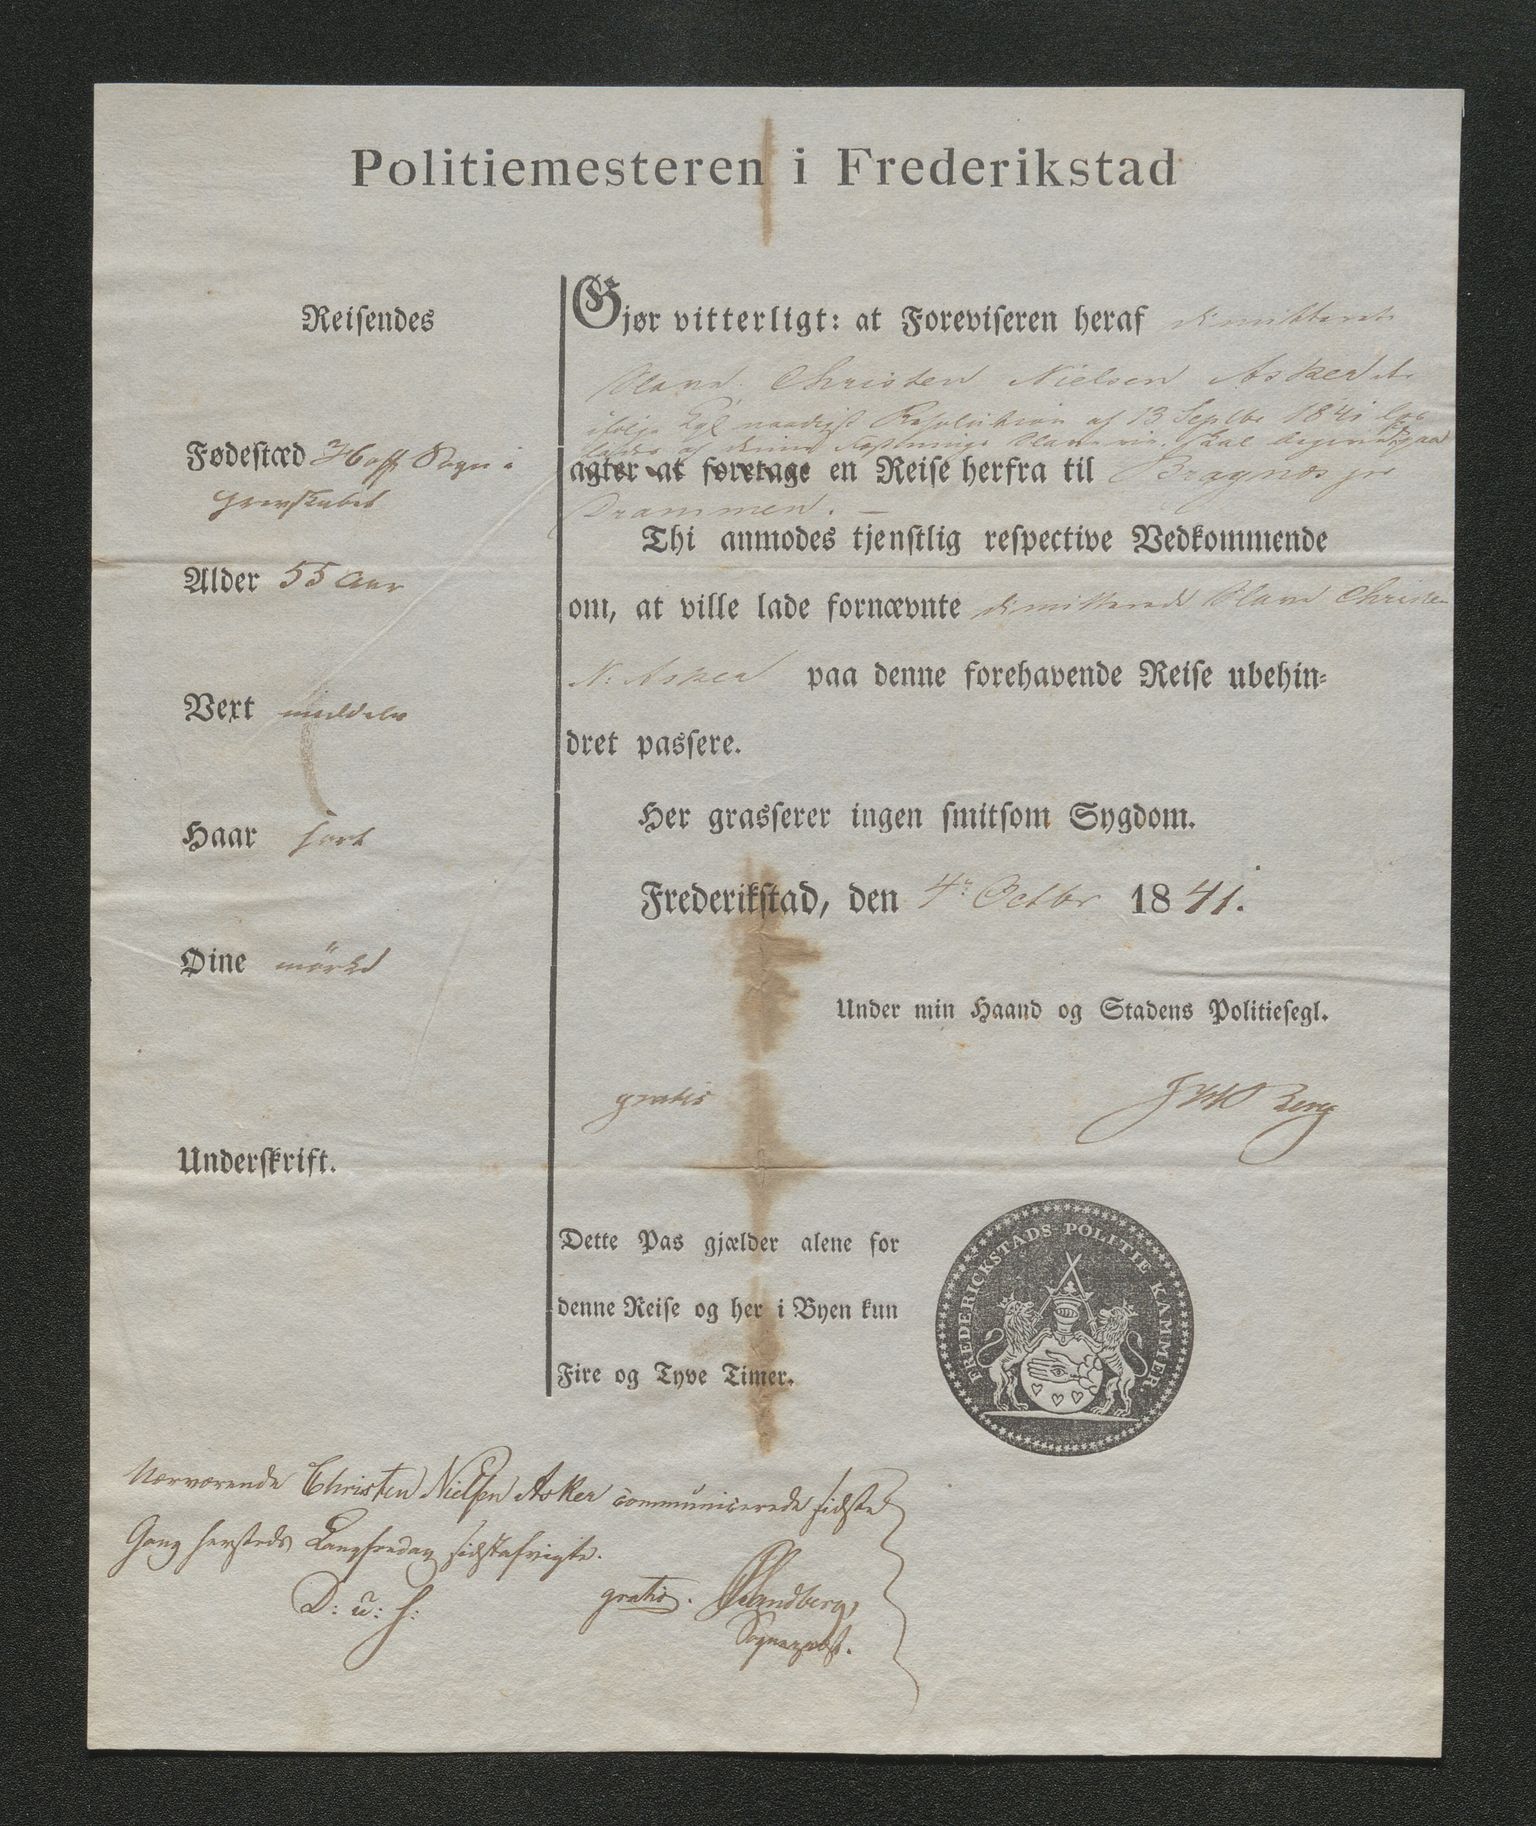 Politiemesteren i Frederikstad
Reisendes
Fødestæd Hoff Sogn i
Grevskabet
Alder 55 Aar
Vext middels
Haar sort
Øine mörke
Underskrift.
Gjør vitterligt: at Foreviseren heraf dimitterede
Slave Christen Nielsen Asker, der
ifølge Kgl. naadigst Resolution af 13 Septbr 1841 er
af denne Fæstnings Slaverie, skal begive sig paa
agter at foretage en Reise herfra til Bragnæs pr
Drammen. —
Thi anmodes tjenstlig respective Vedkommende
om, at ville lade fornævnte dimitterede Slave Christen
N: Asker paa denne forehavende Reise ubehin-
dret passere.
Her grasserer ingen smitsom Sygdom.
Frederikstad, den 4de Octbr 1841.
Under min Haand og Stadens Politiesegl.
gratis
Berg
Dette Pas gjælder alene for
denne Reise og her i Byen kun
Fire og Tyve Timer.
FREDERICKSTADS POLITIE KAMMER
Nærværende Christen Nielsen Asker communicerede sidste
Gang hersteds Langfredag sidstafvigte.
D: u: s:
gratis. Sandberg,
Sogneprest.